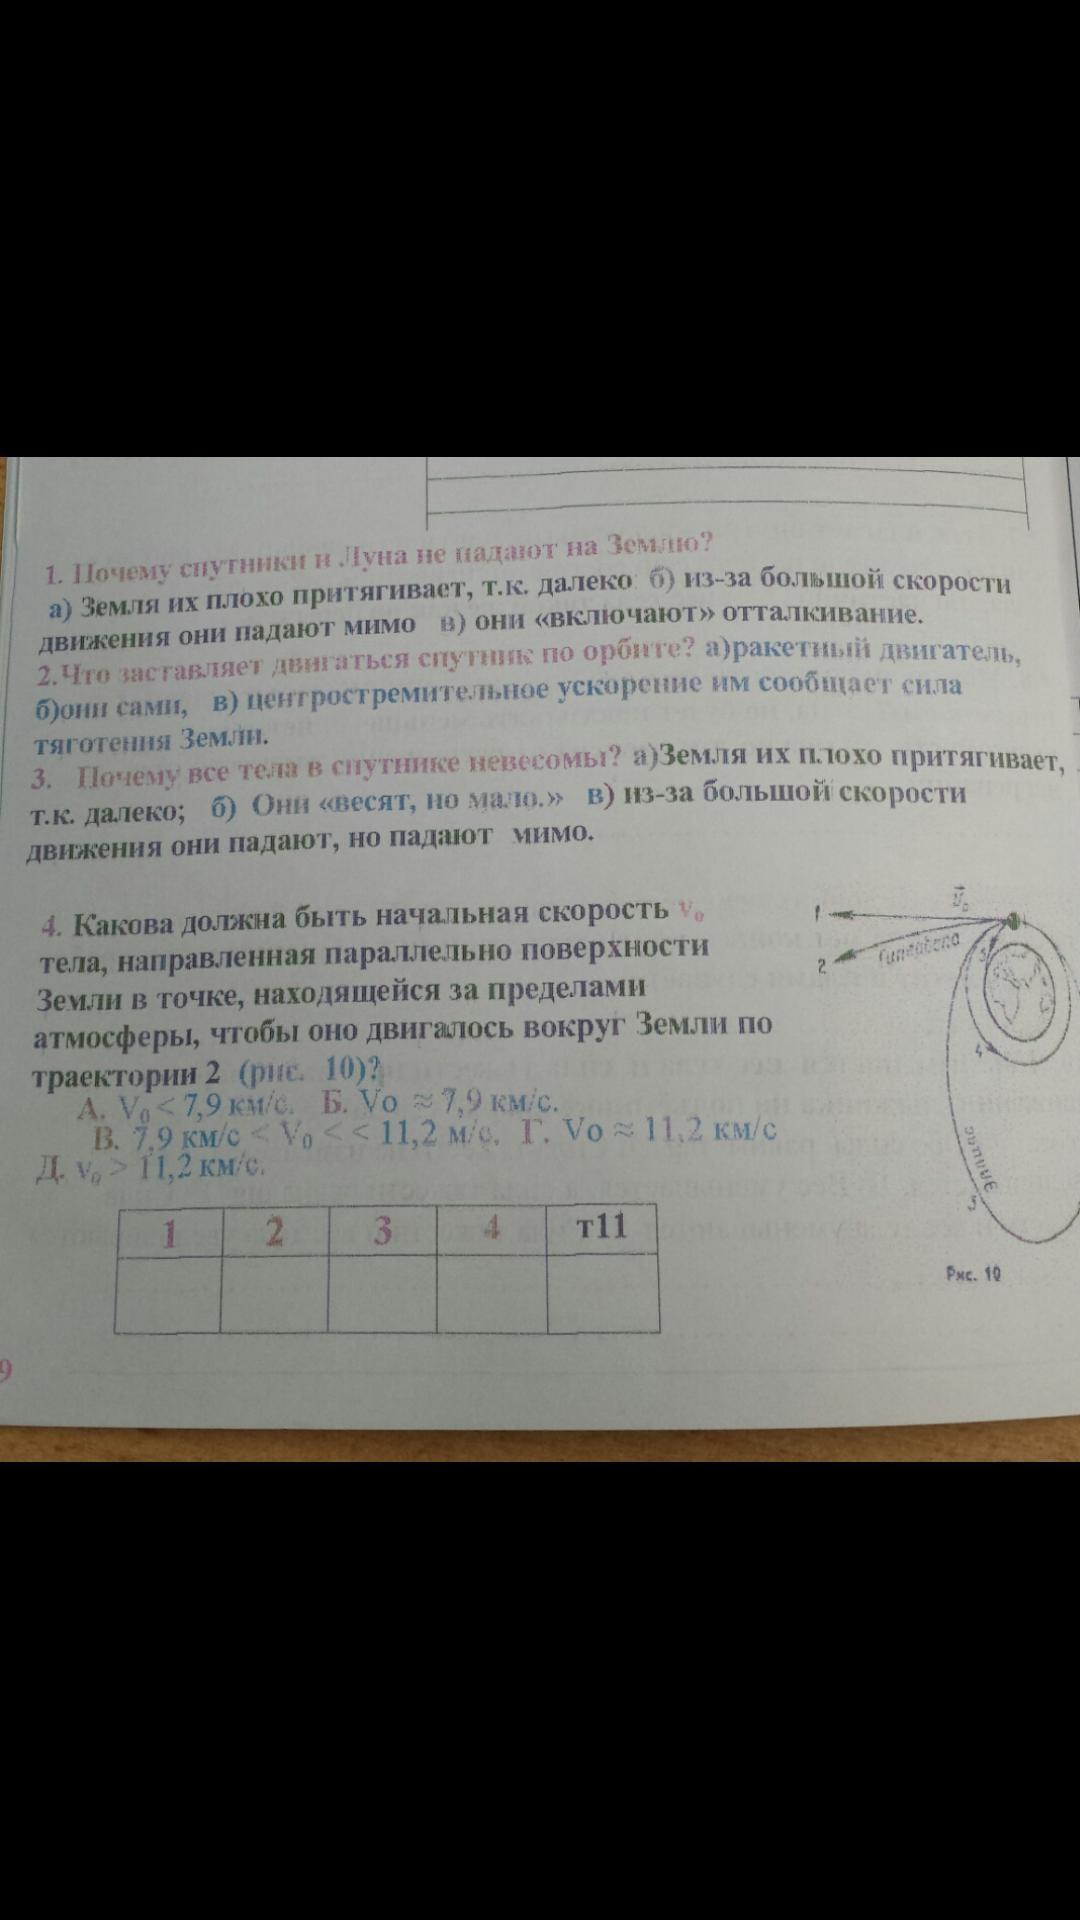 1. Почему спутники и Луна не падают на Землю?
а) Земля их плохо притягивает, т.к. далеко б) из-за большой скорости
движения они падают мимо в) они «включают» отталкивание.
2.Что заставляет двигаться спутник по орбите? а)ракетный двигатель,
б)они сами, в) центростремительное ускорение им сообщает сила
тяготения Земли.
3. Почему все тела в спутнике невесомы? а)Земля их плохо притягивает,
т.к. далеко; б) Они «весят, но мало.» в) из-за большой скорости
движения они падают, но падают мимо.
4. Какова должна быть начальная скорость v₀
тела, направленная параллельно поверхности
Земли в точке, находящейся за пределами
атмосферы, чтобы оно двигалось вокруг Земли по
траектории 2 (рис. 10)?
А. V₀ < 7,9 км/с. Б. Vо ≈ 7,9 км/с.
В. 7,9 км/с < V₀ < < 11,2 м/с. Г. Vо ≈ 11,2 км/с
Д. v₀ > 11,2 км/с.
1 2 3 4 т11
9
v⃗₀
1
2
Гипербола
5
4
Эллипс
3
Рис. 10